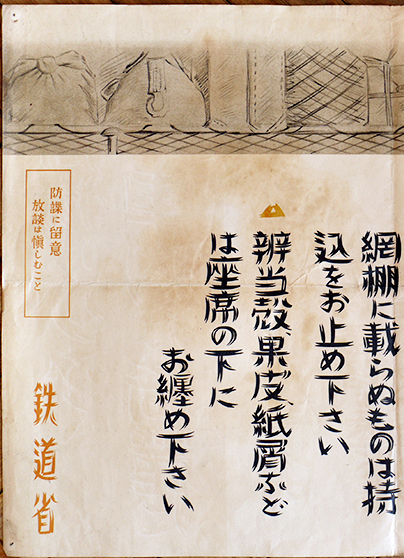 網棚に載らぬものは持
込をお止め下さい
辨当殻、果皮、紙屑など
は座席の下に
お纏め下さい
防諜に留意
放談は愼しむこと
鉄道省